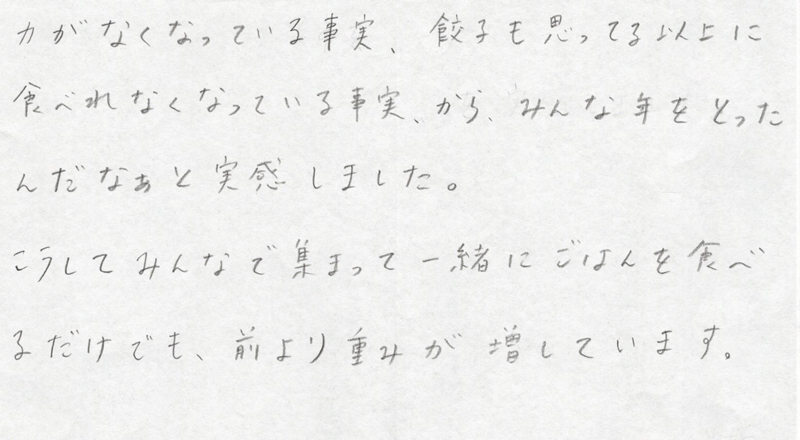 力がなくなっている事実、餃子も思ってる以上に
食べれなくなっている事実、から、みんな年をとった
んだなぁと実感しました。
こうしてみんなで集まって一緒にごはんを食べ
るだけでも、前より重みが増しています。